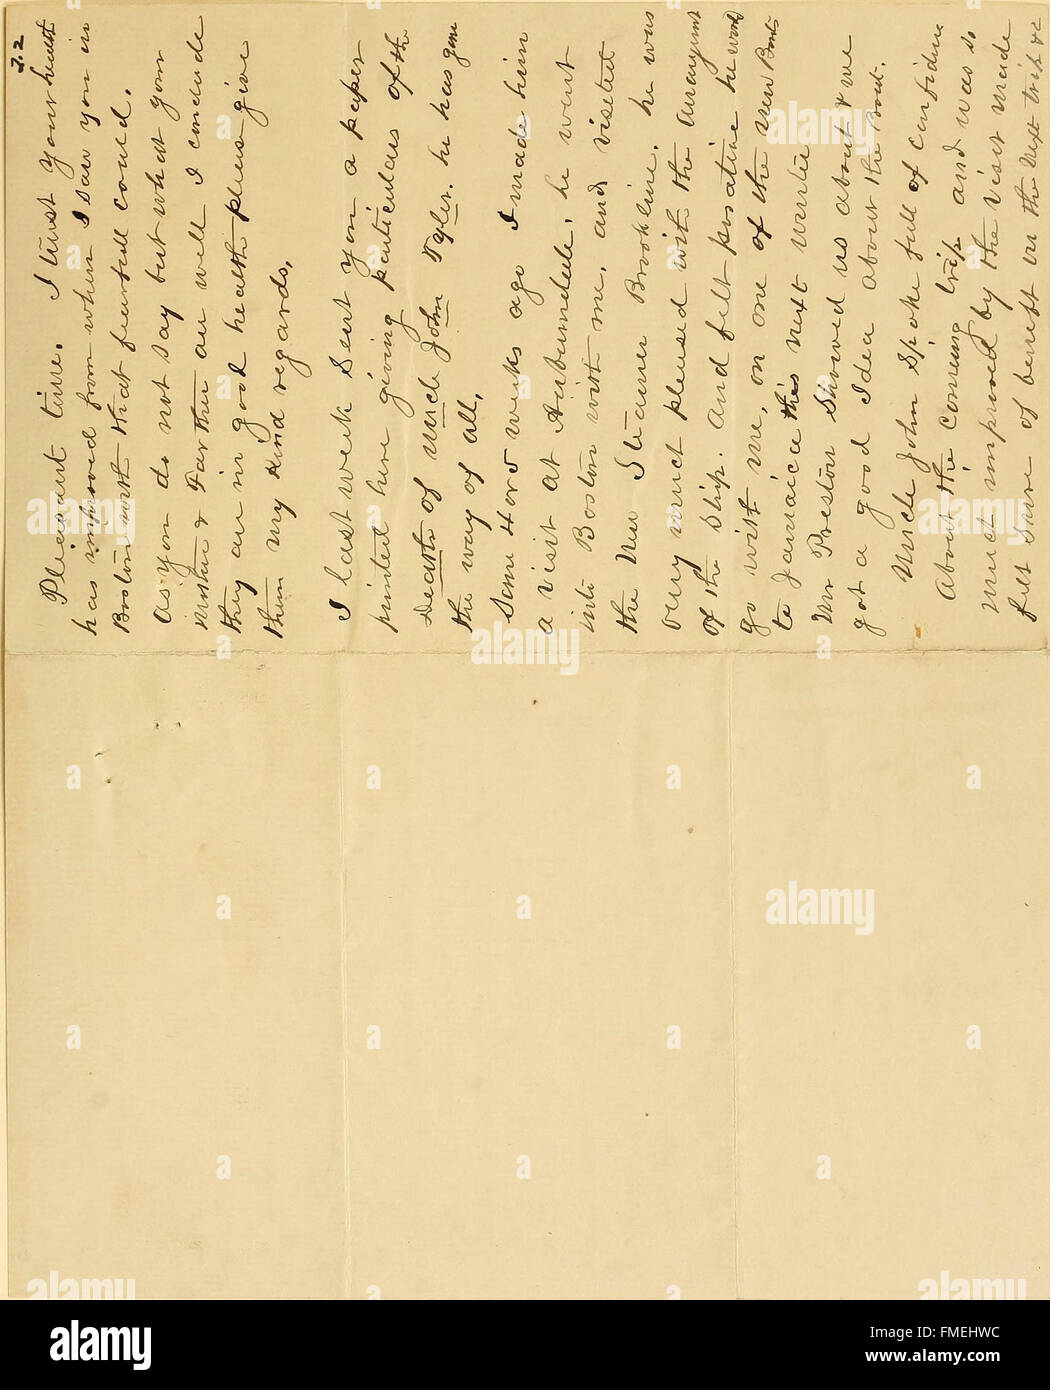 P. 2
Pleasant time. I trust your health
has improved from when I saw you in
Boston with that fearfull could.
As you do not say but what your
Mother & Farther are well I conclude
they are in good health please give
them my kind regards.
I last week sent you a paper
printed here giving particulars of the
Death of Uncle John Tyler. he has gone
the way of all.
Some 4 or 5 weeks ago I made him
a visit at Auburndale, he went
into Boston with me, and visited
the New Steamer Brookline. he was
very much pleased with the arraignmt
of the Ship. And felt positive he would
go with me, on one of the new Boats
to Jamaica this next winter
Mr Preston Showed us about & we
got a good Idea about the Boat.
Uncle John Spoke full of confidence
about the coming trip and was so
much improved by the visit made
felt sure of benefit on the next trip &c
alamy
FMEHWC
www.alamy.com